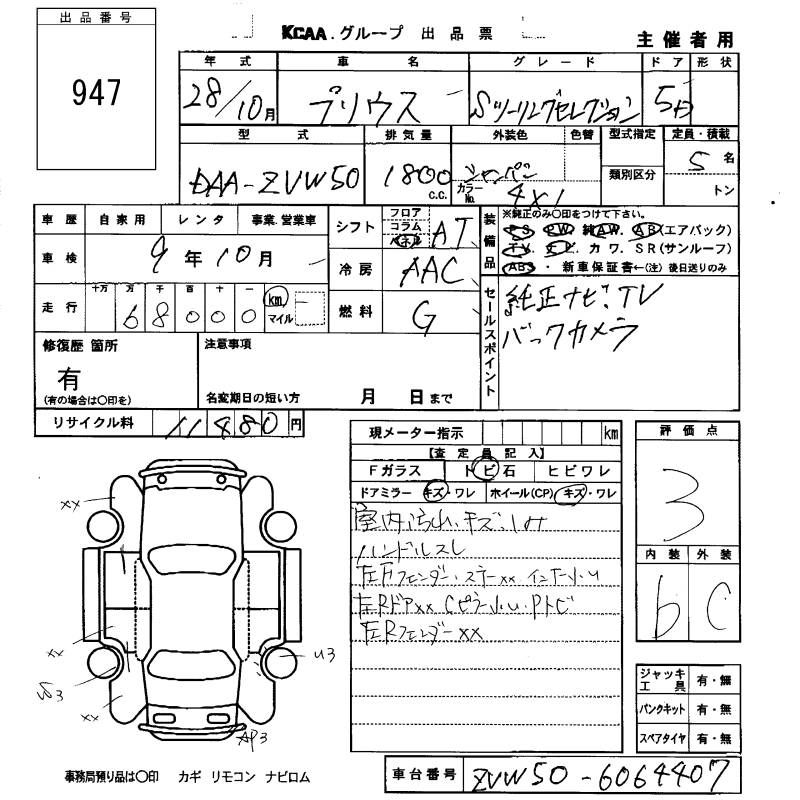 出品番号
947
KCAA.グループ 出品票
主催者用
年式 車名 グレード ドア 形状
28/10月 プリウス Sツーリングセレクション 5D
型式 排気量 外装色 色替 型式指定 定員・積載
DAA-ZVW50 1800 c.c. シャンパン 類別区分 5名
カラーNo. 4X1 トン
車歴 自家用 レンタ 事業.営業車
車検 9年10月
走行 十万 万 千 百 十 一
68000 km マイル
シフト フロア コラム パネル AT
冷房 AAC
燃料 G
装備品
※純正のみ〇印をつけて下さい。
PS. PW. 純AW. AB(エアバック)
TV. ナビ. カワ. SR(サンルーフ)
ABS ・ 新車保証書←(注) 後日送りのみ
セールスポイント
純正ナビ.TV
バックカメラ
修復歴 箇所
有
(有の場合は〇印を)
注意事項
名変期日の短い方 月 日まで
リサイクル料 11480円
現メーター指示 km
【査定員記入】
Fガラス トビ石 ヒビワレ
ドアミラー キズ・ワレ ホイール(CP) キズ・ワレ
室内汚れ.キズ.シミ
ハンドルスレ
左Fフェンダー.ステーxx インナー小U
左Rドアxx Cピラー小U.Pトビ
左Rフェンダーxx
評価点
3
内装 外装
b C
ジャッキ工具 有・無
パンクキット 有・無
スペアタイヤ 有・無
xx
xx
xx
U3
AP3
事務局預り品は〇印 カギ リモコン ナビロム
車台番号 ZVW50-6064407